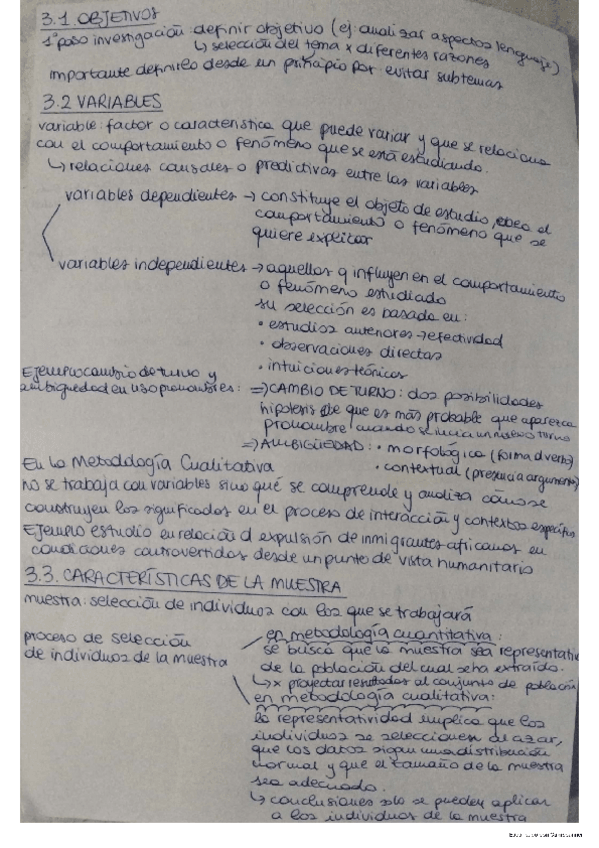 3.1. OBJETIVOS
1º paso investigación: definir objetivo (ej: analizar aspectos lenguaje)
↳ selección del tema x diferentes razones
importante definirlo desde un principio por evitar subtemas
3.2 VARIABLES
variable: factor o característica que puede variar y que se relaciona
con el comportamiento o fenómeno que se está estudiando.
↳ relaciones causales o predictivas entre las variables
variables dependientes → constituye el objeto de estudio, el
comportamiento o fenómeno que se
quiere explicar
variables independientes → aquellos q influyen en el comportamiento
o fenómeno estudiado
su selección es basada en:
• estudios anteriores → efectividad
• observaciones directas
• intuiciones teóricas
Ejemplo cambio de turno y
ambigüedad en uso pronombres: ⇒ CAMBIO DE TURNO: dos posibilidades
hipótesis de que es más probable que aparezca
pronombre cuando se inicia un nuevo turno
⇒ AMBIGÜEDAD: • morfológica (forma d verbo)
• contextual (presencia argumento)
En la Metodología Cualitativa
no se trabaja con variables sino qué se comprende y analiza cómo se
construyen los significados en el proceso de interacción y contextos específicos
Ejemplo estudio en relación d expulsión de inmigrantes africanos en
condiciones controvertidas desde un punto de vista humanitario
3.3. CARACTERÍSTICAS DE LA MUESTRA
muestra: selección de individuos con los que se trabajará
proceso de selección
de individuos de la muestra
en metodología cuantitativa:
se busca que la muestra sea representativ
de la población del cual se ha extraído.
↳ x proyectar resultados al conjunto de población
en metodología cualitativa:
la representatividad implica que los
individuos se seleccionen al azar,
que los datos sigan una distribución
normal y que el tamaño de la muestra
sea adecuado.
↳ conclusiones solo se pueden aplicar
a los individuos de la muestra